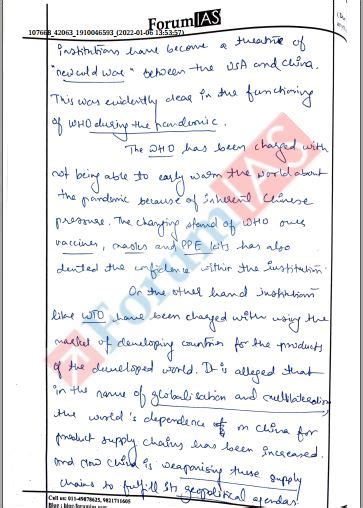 ForumIAS
107668_42063_1910046593_(2022-01-06 13:53:57)
institutions have become a theatre of
"new cold war" between the USA and China.
This was evidently clear in the functioning
of WHO during the pandemic.
The WHO has been charged with
not being able to early warn the world about
the pandemic because of inherent Chinese
pressure. The changing stand of WHO over
vaccines, masks and PPE kits has also
dented the confidence within the institution.
On the other hand institution
like WTO have been charged with using the
market of developing countries for the products
of the developed world. It is alleged that
in the name of globalisation and multilateralism,
the world's dependence on China for
product supply chains has been increased.
And now China is weaponising these supply
chains to fulfill its geopolitical agendas.
Call us: 011-49878625, 9821711605
Blog : blog.forumias.com
ForumIAS